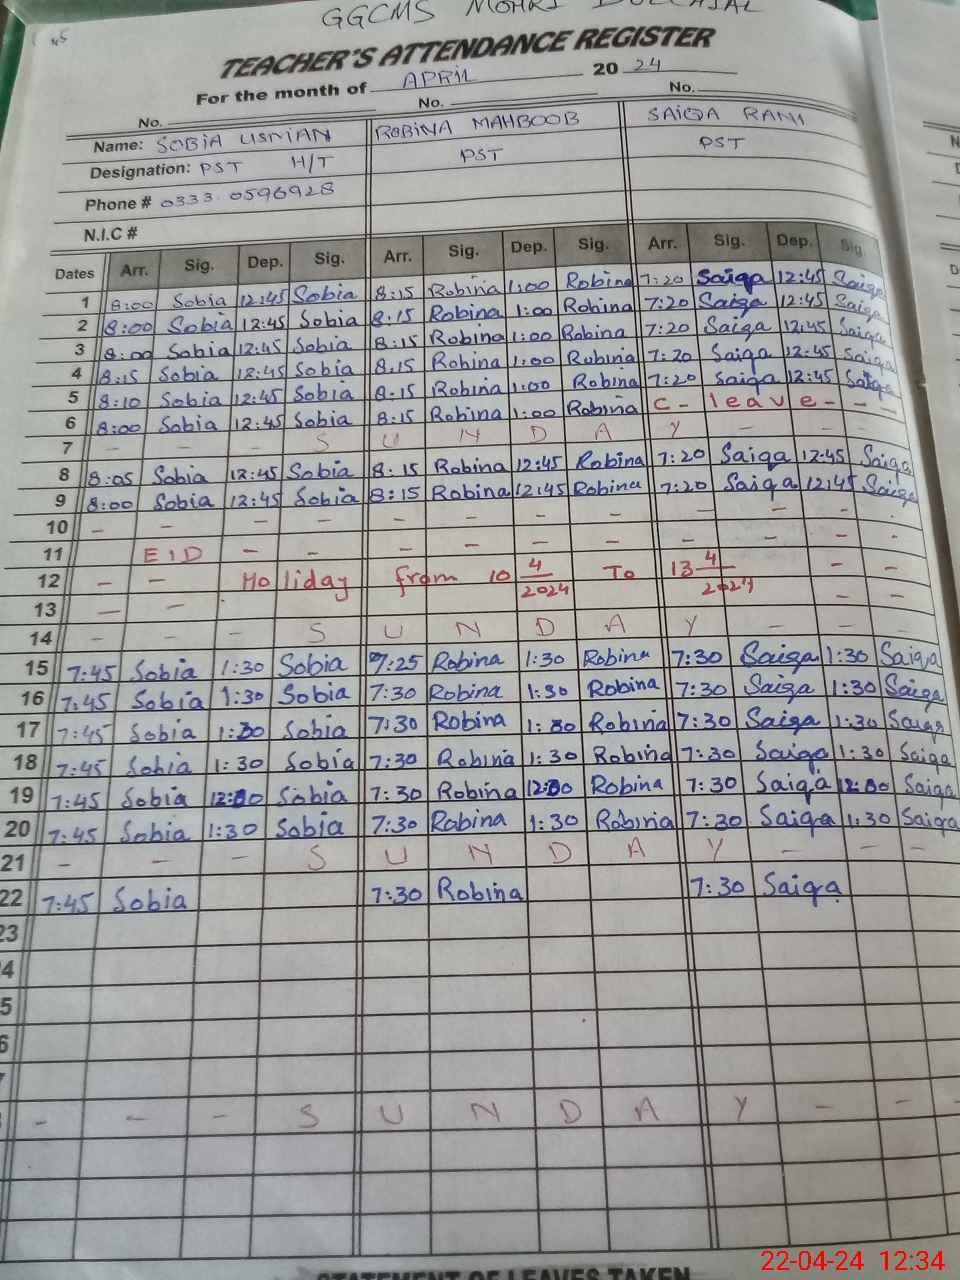 GGCMS MOHRI
TEACHER'S ATTENDANCE REGISTER
For the month of APRIL 2024
No. No. No.
Name: SOBIA USMAN ROBINA MAHBOOB SAIQA RANI
Designation: PST H/T PST PST
Phone # 0333 0596928
N.I.C #
Dates Arr. Sig. Dep. Sig. Arr. Sig. Dep. Sig. Arr. Sig. Dep. Sig.
1 8:00 Sobia 12:45 Sobia 8:15 Robina 1:00 Robina 7:20 Saiqa 12:45 Saiqa
2 8:00 Sobia 12:45 Sobia 8:15 Robina 1:00 Robina 7:20 Saiqa 12:45 Saiqa
3 8:00 Sobia 12:45 Sobia 8:15 Robina 1:00 Robina 7:20 Saiqa 12:45 Saiqa
4 8:15 Sobia 12:45 Sobia 8:15 Robina 1:00 Robina 7:20 Saiqa 12:45 Saiqa
5 8:10 Sobia 12:45 Sobia 8:15 Robina 1:00 Robina 7:20 Saiqa 12:45 Saiqa
6 8:00 Sobia 12:45 Sobia 8:15 Robina 1:00 Robina C- leave - - -
7 - - - S U N D A Y - - -
8 8:05 Sobia 12:45 Sobia 8:15 Robina 12:45 Robina 7:20 Saiqa 12:45 Saiqa
9 8:00 Sobia 12:45 Sobia 8:15 Robina 12:45 Robina 7:20 Saiqa 12:45 Saiqa
10 - - - - - - - - - - - -
11 EID - - - - - - - - - -
12 - - Holiday from 10 4/2024 To 13 4/2024 - -
13 - - - -
14 - - - S U N D A Y - - -
15 7:45 Sobia 1:30 Sobia 7:25 Robina 1:30 Robina 7:30 Saiqa 1:30 Saiqa
16 7:45 Sobia 1:30 Sobia 7:30 Robina 1:30 Robina 7:30 Saiqa 1:30 Saiqa
17 7:45 Sobia 1:30 Sobia 7:30 Robina 1:30 Robina 7:30 Saiqa 1:30 Saiqa
18 7:45 Sobia 1:30 Sobia 7:30 Robina 1:30 Robina 7:30 Saiqa 1:30 Saiqa
19 7:45 Sobia 12:00 Sobia 7:30 Robina 12:00 Robina 7:30 Saiqa 12:00 Saiqa
20 7:45 Sobia 1:30 Sobia 7:30 Robina 1:30 Robina 7:30 Saiqa 1:30 Saiqa
21 - - - S U N D A Y - - -
22 7:45 Sobia 7:30 Robina 7:30 Saiqa
23
4
5
6
- - - S U N D A Y - - -
STATEMENT OF LEAVES TAKEN
22-04-24 12:34